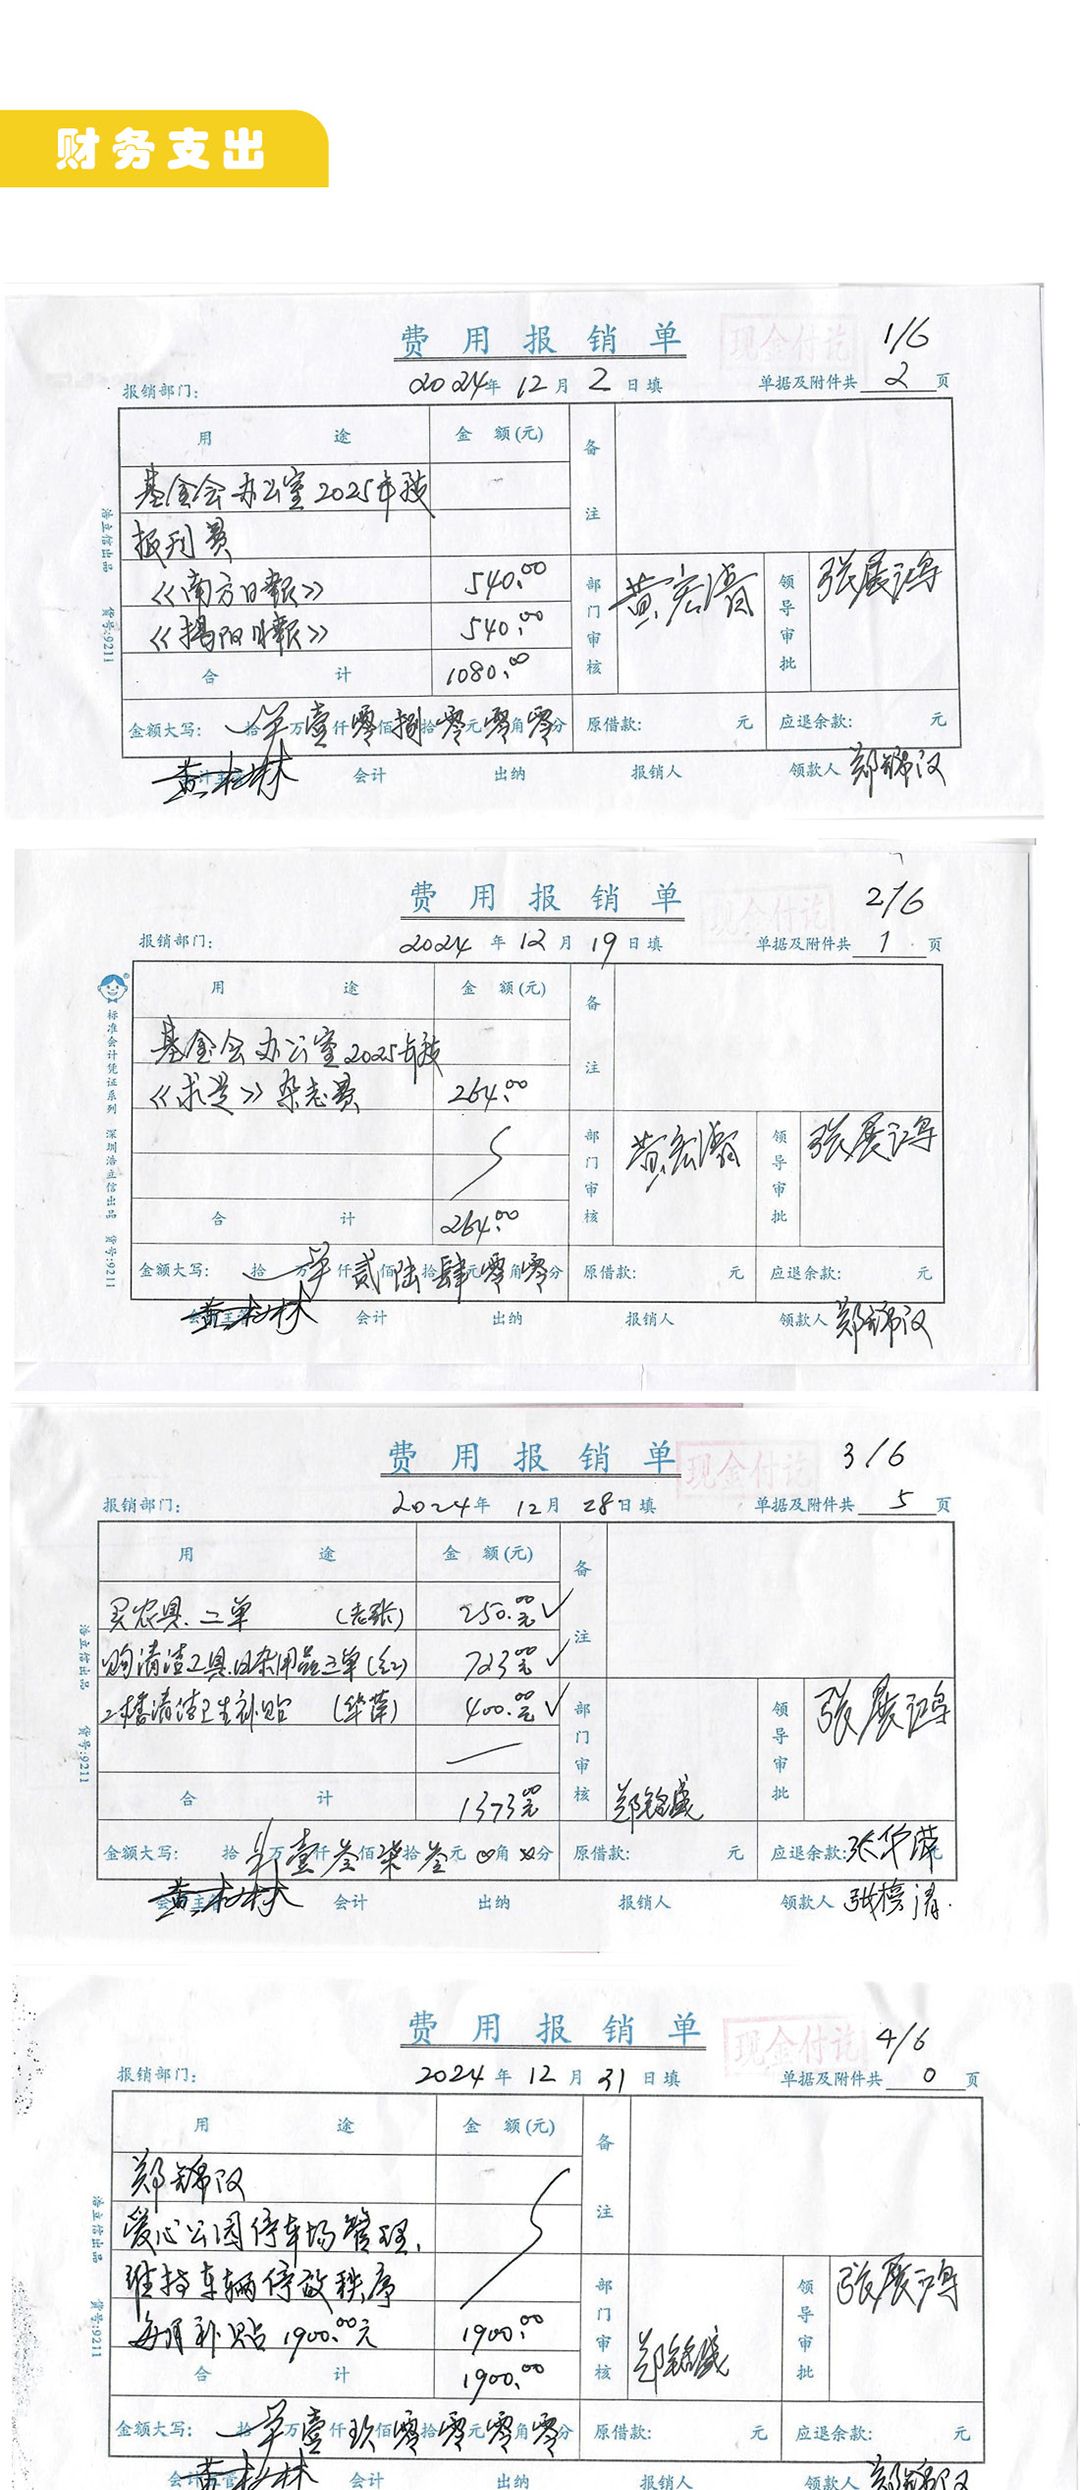 财务支出
费用报销单
现金付讫
1/6
报销部门:
2024年 12月 2日填
单据及附件共 2 页
用途
金额(元)
备注
基金会办公室2025年订
报刊费
《南方日报》 540.00
《揭阳日报》 540.00
合计 1080.00
部门审核 黄宏涛
领导审批 张展鸿
金额大写: 拾万壹仟零佰捌拾零元零角零分
原借款: 元
应退余款: 元
会计 出纳 报销人 领款人 郑锦汉
浩立信出品 货号:9211
费用报销单
现金付讫
2/6
报销部门:
2024年 12月 19日填
单据及附件共 1 页
用途
金额(元)
备注
基金会办公室2025年订
《求是》杂志费 264.00
合计 264.00
部门审核 黄宏涛
领导审批 张展鸿
金额大写: 拾万仟贰佰陆拾肆元零角零分
原借款: 元
应退余款: 元
会计 出纳 报销人 领款人 郑锦汉
标准会计凭证系列 深圳浩立信出品 货号:9211
费用报销单
现金付讫
3/6
报销部门:
2024年 12月 28日填
单据及附件共 5 页
用途
金额(元)
备注
买农具.二单 (老张) 250.00元
购清洁工具.日杂用品三单 723.00元
二楼清洁卫生补贴 (华萍) 400.00元
合计 1373.00元
部门审核 郑铭盛
领导审批 张展鸿
金额大写: 拾万壹仟叁佰柒拾叁元0角0分
原借款: 元
应退余款: 张华萍
会计 出纳 报销人 领款人
浩立信出品 货号:9211
费用报销单
现金付讫
4/6
报销部门:
2024年 12月 31日填
单据及附件共 0 页
用途
金额(元)
备注
郑锦汉
爱心公园停车场管理,
维持车辆停放秩序
每月补贴1900.00元 1900.00
合计 1900.00
部门审核 郑铭盛
领导审批 张展鸿
金额大写: 拾万壹仟玖佰零拾零元零角零分
原借款: 元
应退余款: 元
会计 出纳 报销人 领款人 郑锦汉
浩立信出品 货号:9211